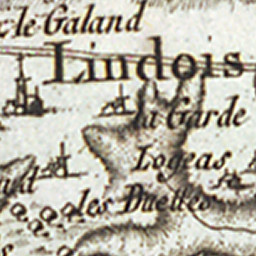 le Galand
Lindois
la Garde
Logeas
les Duelles